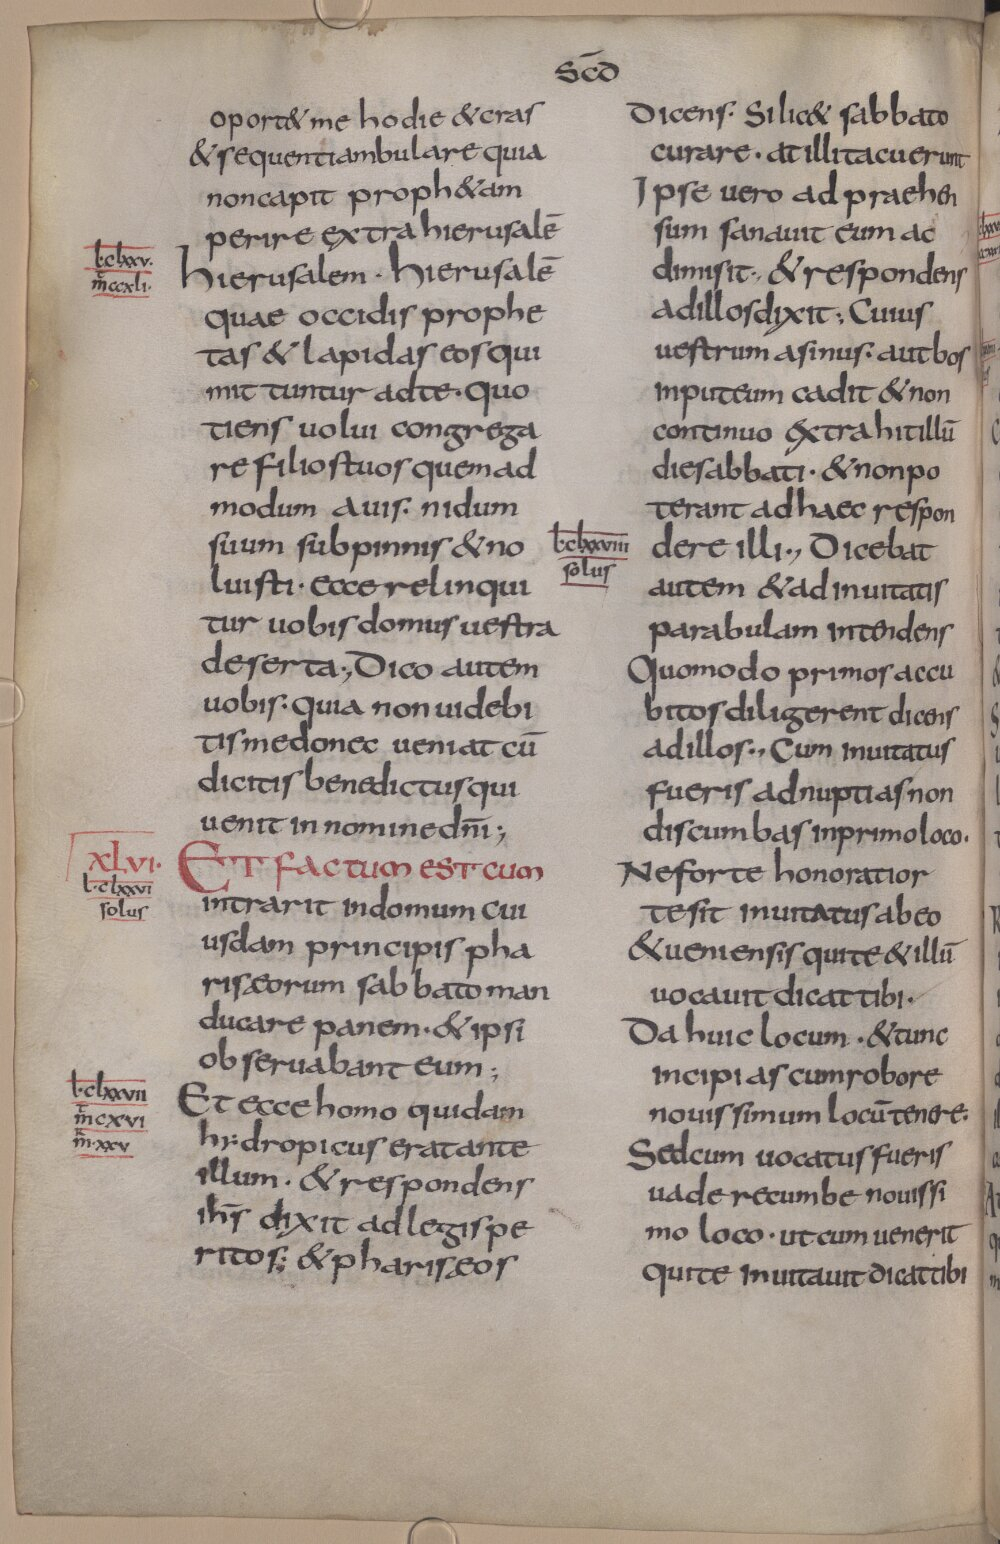 Scd̄
oport& me hodie & cras
& sequenti ambulare quia
non capit proph&am
perire extra hierusalē
l·clxxv·
m̄ ccxli·
hierusalem · hierusalē
quae occidis prophe
tas & lapidas eos qui
mit tuntur ad te · Quo
tiens uolui congrega
re filios tuos quem ad
modum auis· nidum
suum sub pinnis & no
luisti · ecce relinqui
tur uobis domus uestra
deserta·, Dico autem
uobis· quia non uidebi
tis me donec ueniat cū
dicitis benedictus qui
uenit in nomine dn̄i ;
xlvi·
l·clxxvi
solus
Et factum est cum
intrarit in domum cui
usdam principis pha
risæorum sabbato man
ducare panem · & ipsi
obseruabant eum ;
l·clxxvii
m̄ cxvi
m·xxv
Et ecce homo quidam
hydropicus erat ante
illum · & respondens
ihs̄ dixit ad legis pe
ritos; & pharisæos
Dicens· Si lic& sabbato
curare · at illi tacuerunt
Ipse uero adpraehen
sum sanauit eum ac
dimisit·, & respondens
ad illos dixit ; Cuius
uestrum asinus· aut bos
in puteum cadit & non
continuo extrahit illū
die sabbati · & non po
terant ad haec respon
l·clxxviii
solus
dere illi·, Dicebat
autem & ad inuitatis
parabulam intendens
Quomodo primos accu
bitos diligerent dicens
ad illos·, Cum inuitatus
fueris ad nuptias non
discumbas in primo loco·
Ne forte honoratior
te sit inuitatus ab eo
& ueniens is qui te & illū
uocauit dicat tibi·
Da huic locum · & tunc
incipias cum robore
nouissimum locū tenere·
Sed cum uocatus fueris
uade recumbe nouissi
mo loco · ut cum uenerit
qui te inuitauit dicat tibi